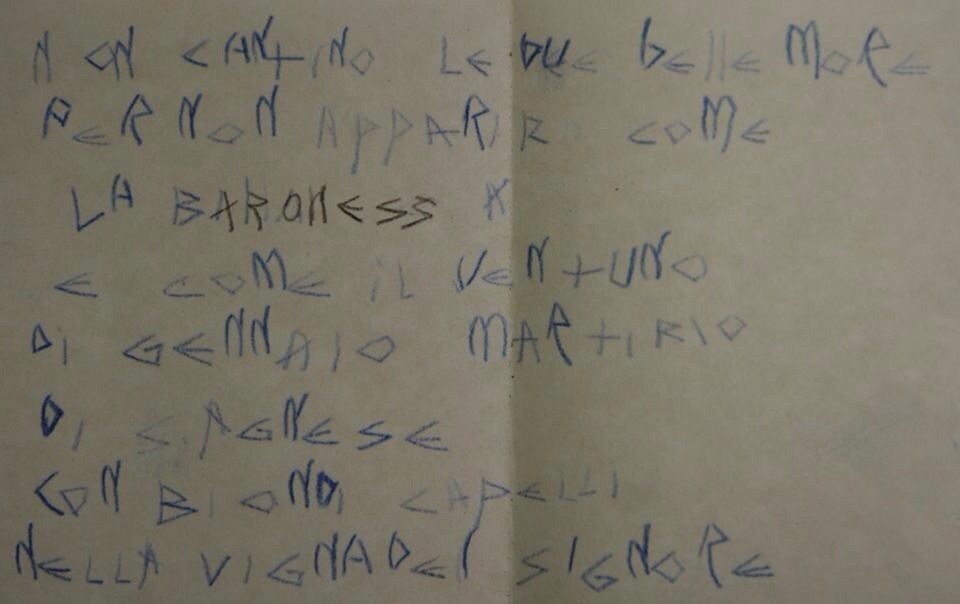 NON CANTINO LE DUE BELLE MORE
PER NON APPARIR COME
LA BARONESSA
E COME IL VENTUNO
DI GENNAIO MARTIRIO
DI S. AGNESE
CON BIONDI CAPELLI
NELLA VIGNA DEL SIGNORE